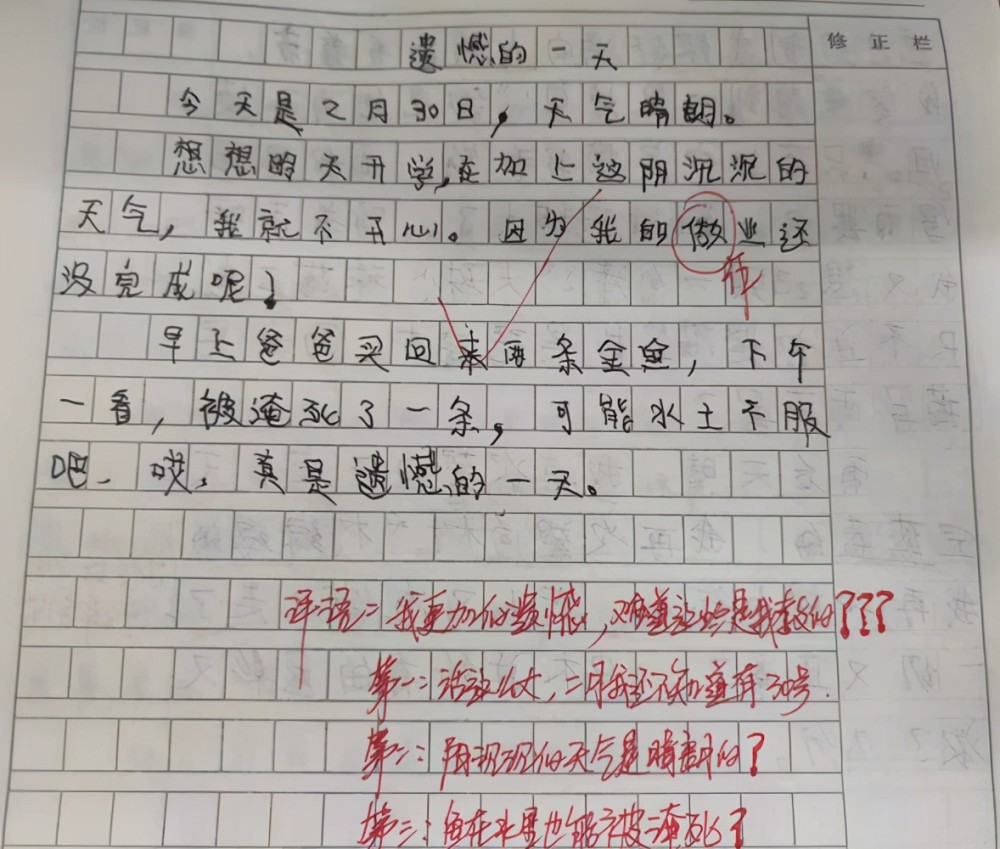 修正栏
遗憾的一天
今天是2月30日，天气晴朗。
想想明天开学，在加上这阴沉沉的
天气，我就不开心。因为我的做业还
作
没完成呢！
早上爸爸买回来两条金鱼，下午
一看，被淹死了一条，可能水土不服
吧、哎，真是遗憾的一天。
评语：我更加的遗憾，难道这些是我教的???
第一：活这么大，二月我还不知道有30号.
第二：阴沉沉的天气是晴朗的?
第三：鱼在水里也能被淹死?